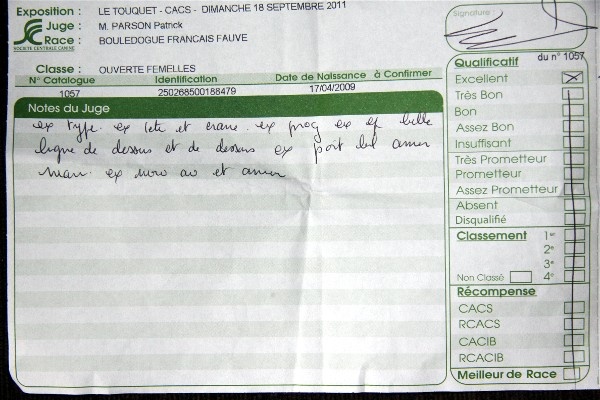 Exposition : LE TOUQUET - CACS - DIMANCHE 18 SEPTEMBRE 2011
Juge : M. PARSON Patrick
Race : BOULEDOGUE FRANCAIS FAUVE
SOCIETE CENTRALE CANINE
Classe : OUVERTE FEMELLES
N° Catalogue Identification Date de Naissance à Confirmer
1057 250268500188479 17/04/2009
Notes du Juge
ex type ex tete et crane ex prog ex belle
ligne de dessus et de dessous ex port bel
ex et
Signature :
Qualificatif du n° 1057
Excellent
Très Bon
Bon
Assez Bon
Insuffisant
Très Prometteur
Prometteur
Assez Prometteur
Absent
Disqualifié
Classement 1er
2e
3e
Non Classé 4e
Récompense
CACS
RCACS
CACIB
RCACIB
Meilleur de Race